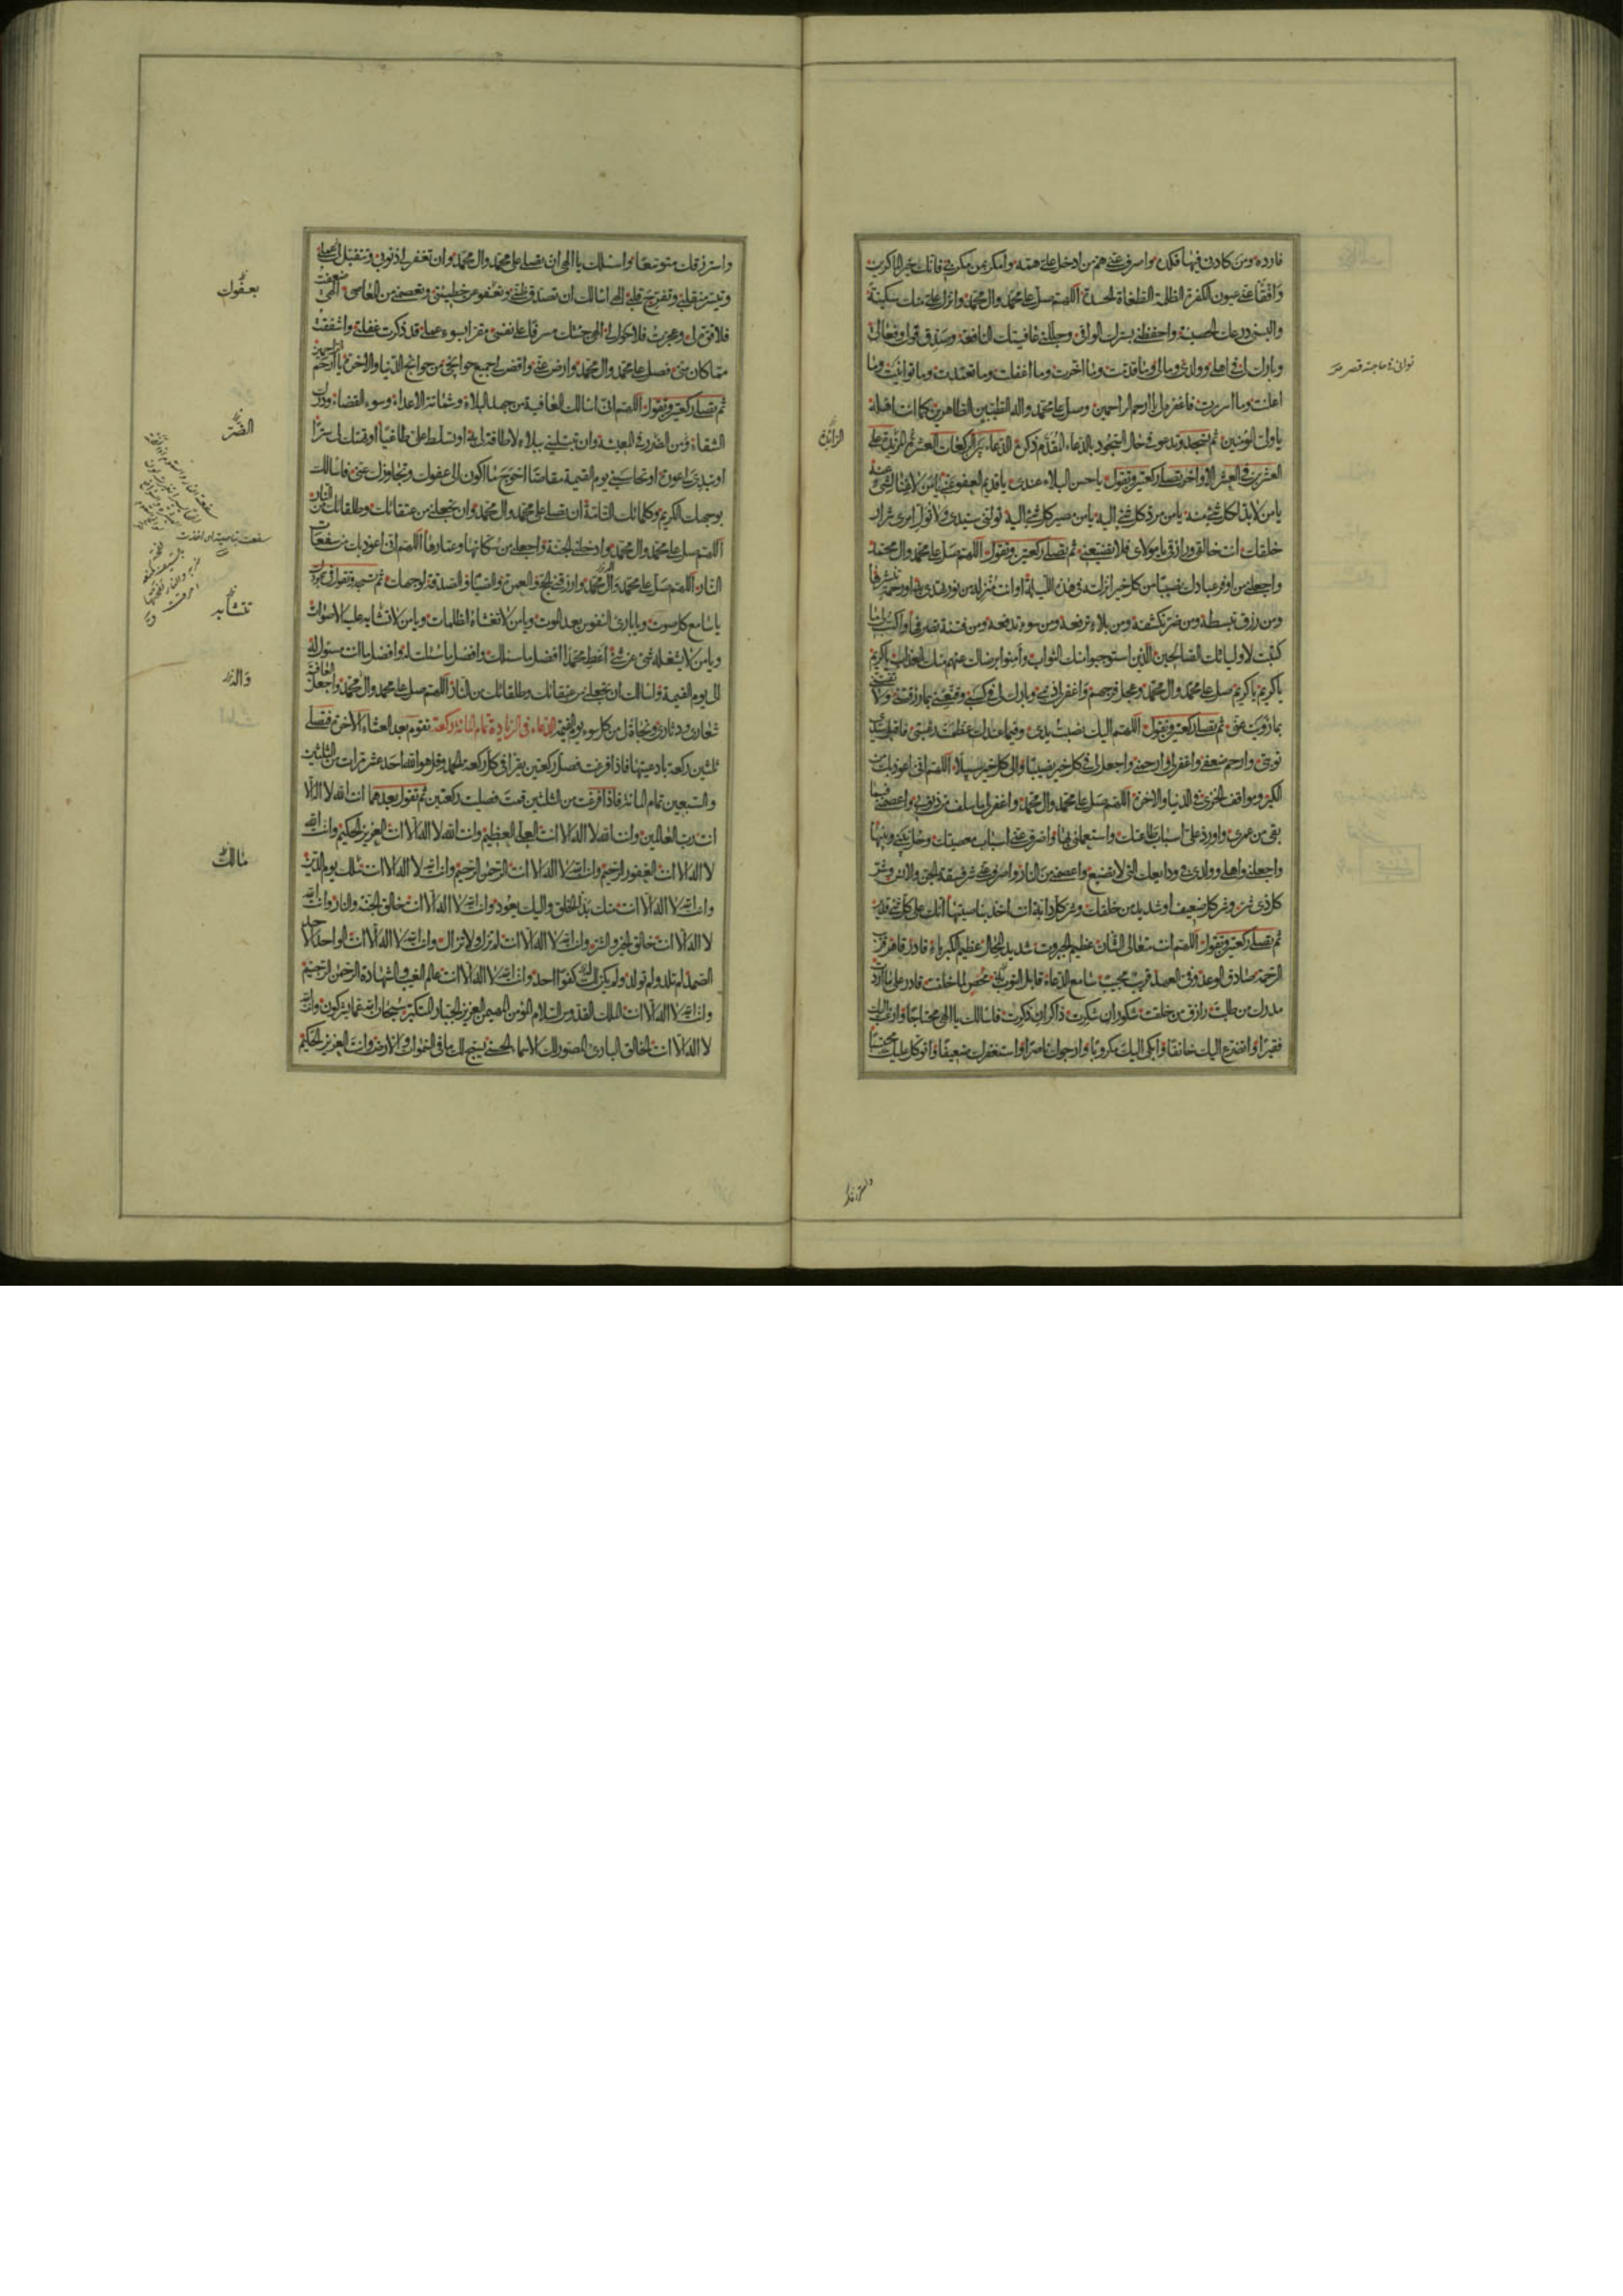 فارده ومن كادنى فيها فكده واصرف عنى هم من ادخل على همه وامكر بمن مكر بى فانك خير الماكرين
وافقأ عنى عيون الكفرة الظلمة الطغاة الحسدة اللهم صل على محمد وال محمد وانزل على منك سكينة
والبسنى درعك الحصينة واحفظنى بسترك الواقى وجللنى عافيتك النافعة وصدق قولى وفعالى
وبارك لى فى اهلى وولدى ومالى وما قدمت وما اخرت وما اغفلت وما تعمدت وما توانيت وما
اعلنت وما اسررت فاغفر لى يا ارحم الراحمين وصل على محمد واله الطيبين الطاهرين كما انت اهله
يا ولى المؤمنين ثم تسجد وتدعو فى حال السجود بالدعاء المقدم ذكره الدعاء بين الركعات العشر المزيدة على
العشرين فى العشر الاواخر تصلى ركعتين وتقول يا حسن البلاء عندى يا قديم العفو عنى يا من لا غناء لشىء عنه
يا من لا بد لكل شىء منه يا من مرد كل شىء اليه يا من مصير كل شىء اليه تولنى سيدى ولا تول امرى شرار
خلقك انت خالقى ورازقى يا مولاى فلا تضيعنى ثم تصلى ركعتين وتقول اللهم صل على محمد وال محمد
واجعلنى من اوفر عبادك نصيبا من كل خير انزلته فى هذه الليلة او انت منزله من نور تهدى به او رحمة تنشرها
ومن رزق تبسطه ومن ضر تكشفه ومن بلاء ترفعه ومن سوء تدفعه ومن فتنة تصرفها واكتب لى ما
كتبت لاوليائك الصالحين الذين استوجبوا منك الثواب وامنوا برضاك عنهم منك العذاب يا كريم
يا كريم يا كريم صل على محمد وال محمد وعجل فرجهم واغفر لى ذنبى وبارك لى فى كسبى وقنعنى بما رزقتنى ولا تفتنى
بما زويت عنى ثم تصلى ركعتين وتقول اللهم اليك نصبت يدى وفيما عندك عظمت رغبتى فاقبل سيدى
توبتى وارحم ضعفى واغفر لى وارحمنى واجعل لى فى كل خير نصيبا والى كل خير سبيلا اللهم انى اعوذ بك من
الكبر ومواقف الخزى فى الدنيا والاخرة اللهم صل على محمد وال محمد واغفر لى ما سلف من ذنوبى واعصمنى فيما
بقى من عمرى واورد على اسباب طاعتك واستعملنى بها واصرف عنى اسباب معصيتك وحل بينى وبينها
واجعلنى واهلى وولدى فى ودايعك التى لا تضيع واعصمنى من النار واصرف عنى شر فسقة الجن والانس وشر
كل ذى شر وشر كل ضعيف او شديد من خلقك وشر كل دابة انت اخذ بناصيتها انك على كل شىء قدير
ثم تصلى ركعتين وتقول اللهم انت متعالى الشان عظيم الجبروت شديد المحال عظيم الكبرياء قادر قاهر قريب
الرحمة صادق الوعد وفى العهد قريب مجيب سامع الدعاء قابل التوبة محص لما خلقت قادر على ما اردت
مدرك من طلبت رازق من خلقت شكور ان شكرت ذاكر ان ذكرت فاسالك يا الهى محتاجا وارغب اليك
فقيرا واتضرع اليك خائفا وابكى اليك مكروبا وارجوك ناصرا واستغفرك ضعيفا واتوكل عليك محتسبا
الزائدة
واسترزقك متوسعا واسئلك يا الهى ان تصلى على محمد وال محمد وان تغفر لى ذنوبى وتتقبل عملى
وتيسر منقلبى وتفرج قلبى الهى اسالك ان تصدق ظنى وتعفو عن خطيئتى وتعصمنى من المعاصى الهى ضعفت
فلا قوة لى وعجزت فلا حول لى الهى جئتك مسرفا على نفسى مقرا بسوء عملى قد ذكرت غفلتى واشفقت
مما كان منى فصل على محمد وال محمد وارض عنى واقض لى جميع حوائجى من حوائج الدنيا والاخرة يا ارحم الراحمين
ثم تصلى ركعتين وتقول اللهم انى اسالك العافية من جهد البلاء وشماتة الاعداء وسوء القضاء ودرك
الشقاء ومن الضرر فى المعيشة وان تبتلينى ببلاء لا طاقة لى به او تسلط على طاغيا او تهتك لى سترا
او تبدى لى عورة او تحاسبنى يوم القيمة مقاصا احوج ما اكون الى عفوك وتجاوزك عنى فاسالك
بوجهك الكريم وكلماتك التامة ان تصلى على محمد وال محمد وان تجعلنى من عتقائك وطلقائك من النار
اللهم صل على محمد وال محمد وادخلنى الجنة واجعلنى من سكانها وعمارها اللهم انى اعوذ بك من سفعات
النار اللهم صل على محمد وال محمد وارزقنى الحج والعمرة والصيام والصدقة لوجهك ثم تسجد وتقول فى سجودك
يا سامع كل صوت ويا بارئ النفوس بعد الموت ويا من لا تغشاه الظلمات ويا من لا تشابه عليه الاصوات
ويا من لا يشغله شىء عن شىء اعط محمدا افضل ما سالك وافضل ما سئلت له وافضل ما انت مسئول له
الى يوم القيمة واسالك ان تجعلنى من عتقائك وطلقائك من النار اللهم صل على محمد وال محمد واجعل العافية
شعارى ودثارى ونجاة لى من كل سوء يوم القيمة الدعاء فى الزيادة تمام المائة ركعة تقوم بعد العشاء الاخرة فتصلى
ثلثين ركعة بادعيتها فاذا فرغت فصل ركعتين تقرا فى كل ركعة الحمد وقل هو الله احد عشر مرات من الثلثين
والسبعين تمام المائة فاذا فرغت من الثلثين قمت فصليت ركعتين ثم تقول بعدهما انت الله لا اله الا
انت رب العالمين وانت الله لا اله الا انت العلى العظيم وانت الله لا اله الا انت العزيز الحكيم وانت الله
لا اله الا انت الغفور الرحيم وانت الله لا اله الا انت الرحمن الرحيم وانت الله لا اله الا انت ملك يوم الدين
وانت الله لا اله الا انت منك بدأ الخلق واليك يعود وانت الله لا اله الا انت خالق الجنة والنار وانت الله
لا اله الا انت خالق الخير والشر وانت الله لا اله الا انت لم تزل ولا تزال وانت الله لا اله الا انت الواحد الاحد
الصمد لم تلد ولم تولد ولم يكن لك كفوا احد وانت الله لا اله الا انت عالم الغيب والشهادة الرحمن الرحيم
وانت الله لا اله الا انت الملك القدوس السلام المؤمن المهيمن العزيز الجبار المتكبر سبحان الله عما يشركون وانت الله
لا اله الا انت الخالق البارئ المصور لك الاسماء الحسنى يسبح لك ما فى السموات والارض وانت العزيز الحكيم
بعفوك
الضر
تتشابه
مالك